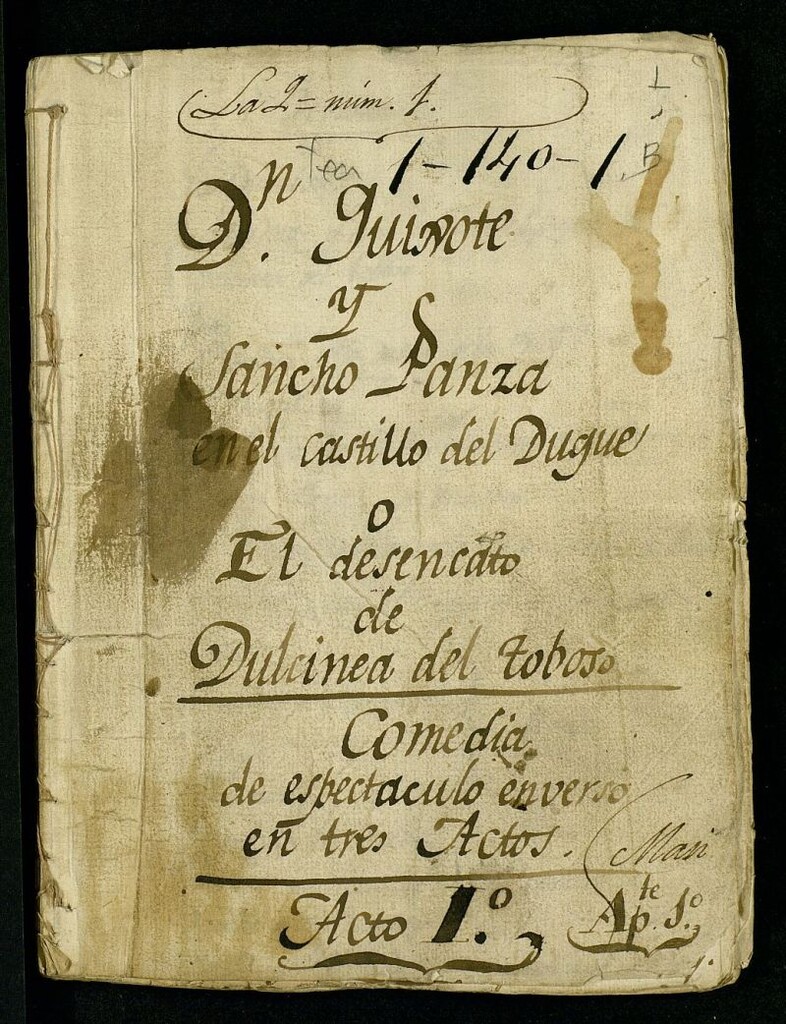 La L = núm. 1.
Tea 1-140-1, B
Dn. Quixote
y
Sancho Panza
en el castillo del Duque
o
El desencãto
de
Dulcinea del toboso
Comedia
de espectaculo en verso
en tres Actos.
Mari
Acto 1.º Ap.te 1.º
1º